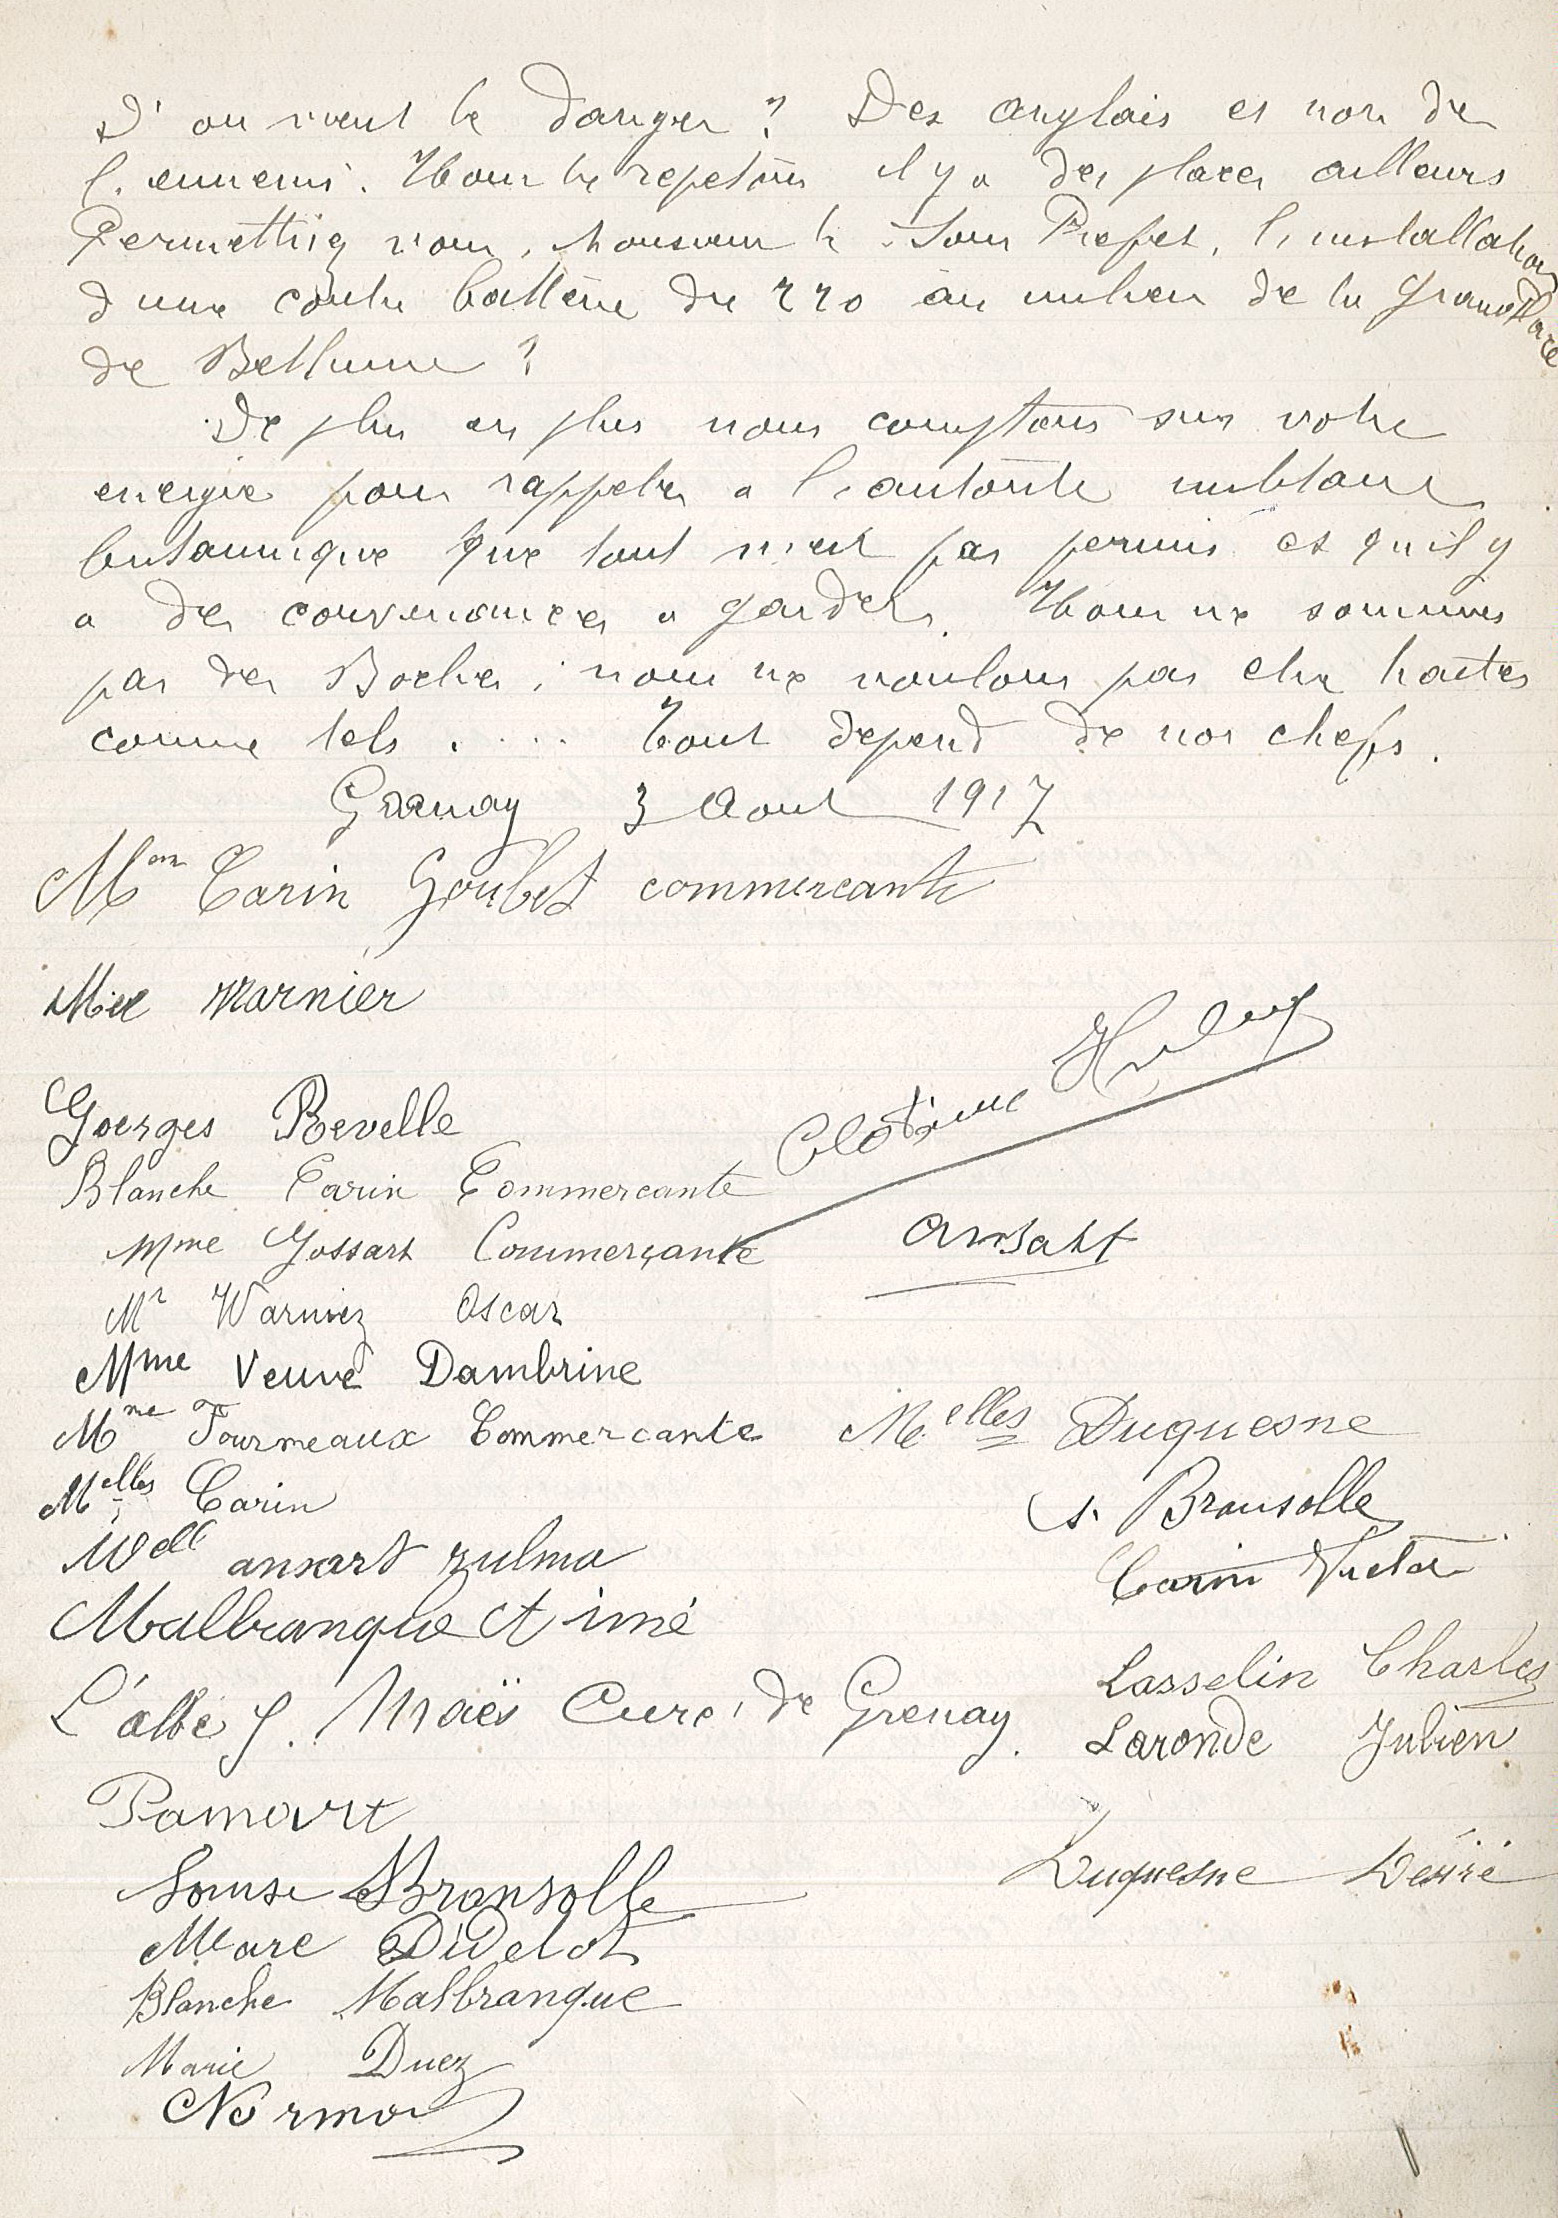 D'ou vient le danger ? Des anglais et non de
l'ennemi. Nous le repetons il y a des places ailleurs
Permettriez vous, Monsieur le Sous Prefet, l'installation
d'une contre batterie de 220 au milieu de la Grand Place
de Bethune ?
De plus en plus nous comptons sur votre
energie pour rappeler a l'autorite militaire
britannique que tout n'est pas permis et qu'il y
a des convenances a garder. Nous ne sommes
pas des Boches ; nous ne voulons pas etre traites
comme tels .... Tout depend de nos chefs.
Grenay 3 Aout 1917
Mme Carin Goubet commercante
Mel Warnier
Goerges Revelle
Clotaire
Blanche Carin Commercante
Mme Gossart Commerçante
Ansart
Mr Warniez Oscar
Mme Veuve Dambrine
Mme Fourmeaux Commercante
Melles Duquesne
Melles Carin
S. Bransolle
Mell ansart zulma
Carin Victor
Malbranque Aimé
L'abbé J. Maës Curé de Grenay.
Lasselin Charles
Laronde Julien
Pamart
Louise Bransolle
Duquesne Désiré
Marc Didelot
Blanche Malbranque
Marie Duez
Normo